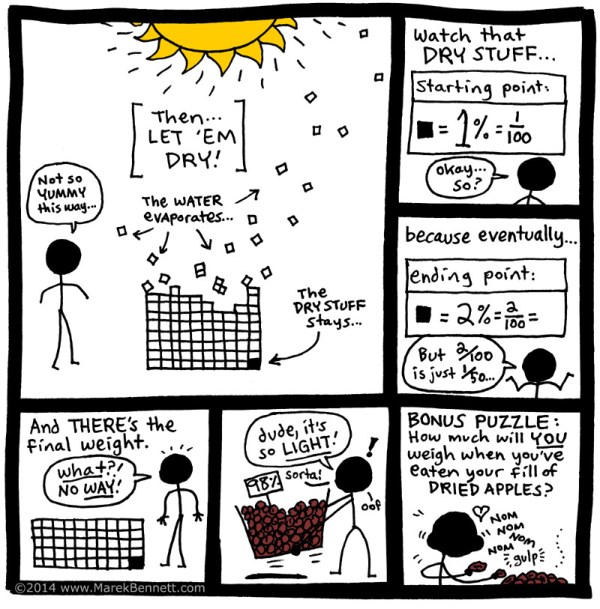 Then...
LET 'EM
DRY!
Not so
YUMMY
this way...
The WATER
evaporates...
The
DRY STUFF
stays...
Watch that
DRY STUFF...
Starting point:
= 1% = 1/100
okay...
So?
because eventually...
ending point:
= 2% = 2/100 =
But 2/100
is just 1/50...
And THERE's the
final weight.
what?!
NO WAY!
dude, it's
so LIGHT!
98%
sorta!
!
oof
BONUS PUZZLE:
How much will YOU
weigh when you've
eaten your fill of
DRIED APPLES?
NOM
NOM
NOM
NOM
gulp
©2014 www.MarekBennett.com